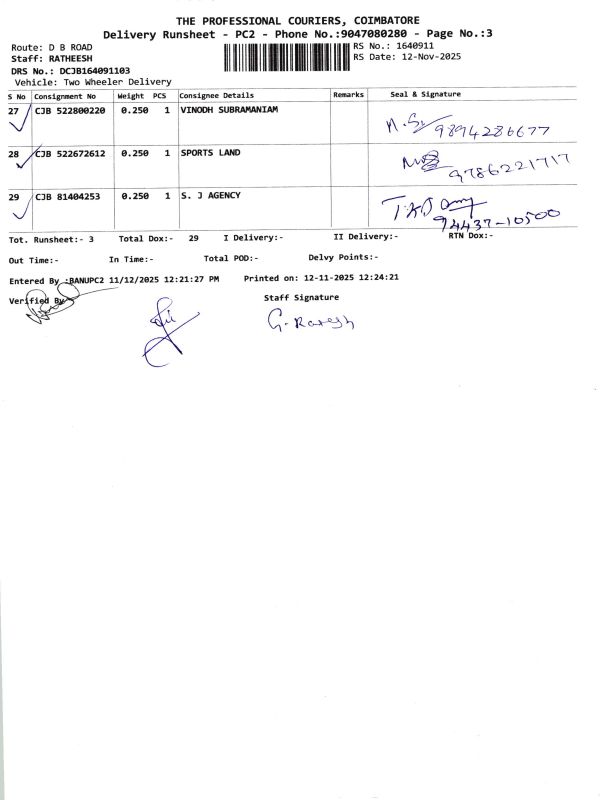 THE PROFESSIONAL COURIERS, COIMBATORE
Delivery Runsheet - PC2 - Phone No.:9047080280 - Page No.:3
Route: D B ROAD
RS No.: 1640911
Staff: RATHEESH
RS Date: 12-Nov-2025
DRS No.: DCJB164091103
Vehicle: Two Wheeler Delivery
S No Consignment No Weight PCS Consignee Details Remarks Seal & Signature
27 CJB 522800220 0.250 1 VINODH SUBRAMANIAM
9894286677
28 CJB 522672612 0.250 1 SPORTS LAND
9786221717
29 CJB 81404253 0.250 1 S. J AGENCY
94437-10500
Tot. Runsheet:- 3 Total Dox:- 29 I Delivery:- II Delivery:- RTN Dox:-
Out Time:- In Time:- Total POD:- Delvy Points:-
Entered By :BANUPC2 11/12/2025 12:21:27 PM Printed on: 12-11-2025 12:24:21
Verified By
Staff Signature
G. Ratesh